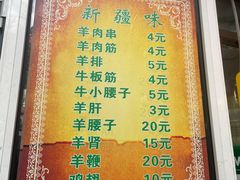 新疆味
羊肉串 4元
羊肉筋 4元
羊排 5元
牛板筋 4元
牛小腰子 5元
羊肝 3元
羊腰子 20元
羊肾 15元
羊鞭 20元
鸡翅 10元